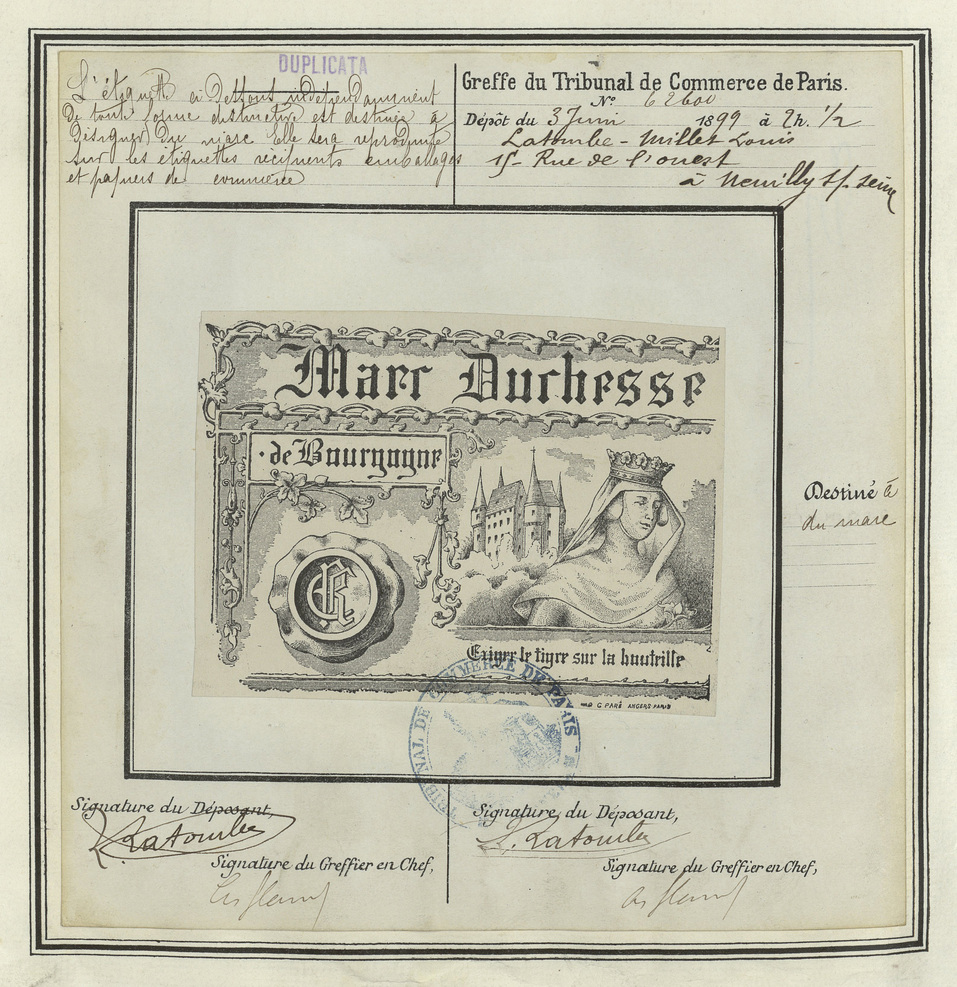 DUPLICATA
L'étiquette ci Dessous indépendamment
de toute forme distinctive est destinée à
Désigner Du marc Elle sera reproduite
sur les étiquettes récipients embalages
et papiers de commerce
Greffe du Tribunal de Commerce de Paris.
N°
Dépôt du 3 Juin 1899 à 2h. 1/2
Latombe-Millet Louis
15 Rue de l'ouest
à Neuilly s/ seine
Marc Duchesse
de Bourgogne
CR
Exiger le tigre sur la bouteille
G PARÉ ANGERS-PARIS
TRIBUNAL DE COMMERCE DE PARIS
Destiné à
du marc
Signature du Déposant,
L. Latombe
Signature du Greffier en Chef,
Signature du Déposant,
L. Latombe
Signature du Greffier en Chef,